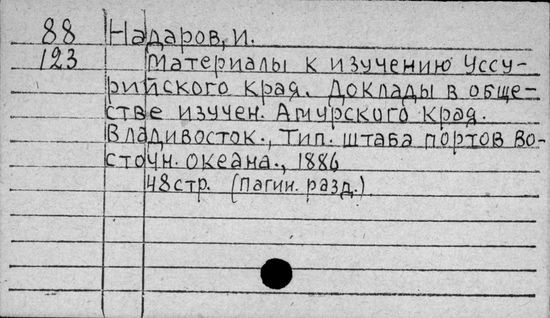 88 Надаров, И.
123 Материалы к изучению Уссу-
рийского края. Доклады в обще-
стве изучен. Амурского края.
Владивосток., Тип. штаба портов Во-
сточн. океана., 1886
48 стр. (пагин. разд.)